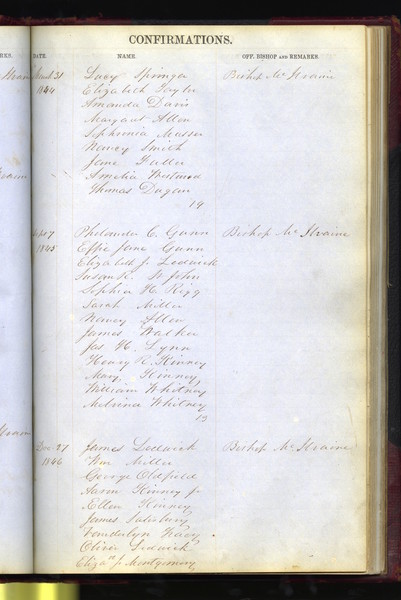 CONFIRMATIONS.
RKS. DATE. NAME. OFF. BISHOP AND REMARKS.
March 31 Lucy Springer Bishop McIlvaine
1844 Elizabeth Taylor
Amanda Davis
Margaret Allen
Sophronia Musser
Nancy Smith
Jane Fuller
Amelia Westwood
Thomas Dugan
19
Sept 7 Philander C. Gunn Bishop McIlvaine
1845 Effie Jane Gunn
Elizabeth J. Lodwick
Susan R. St John
Sophia H. Rigg
Sarah Miller
Nancy Allen
James Walker
Jas H. Lynn
Henry R. Kinney
Mary Kinney
William Whitney
Melvina Whitney
13
Dec 27 James Lodwick Bishop McIlvaine
1846 Wm Miller
George Oldfield
Aaron Kinney Jr
Ellen Kinney
James Salsbury
Vanderlyn
Oliver Lodwick
Elizath J. Montgomery